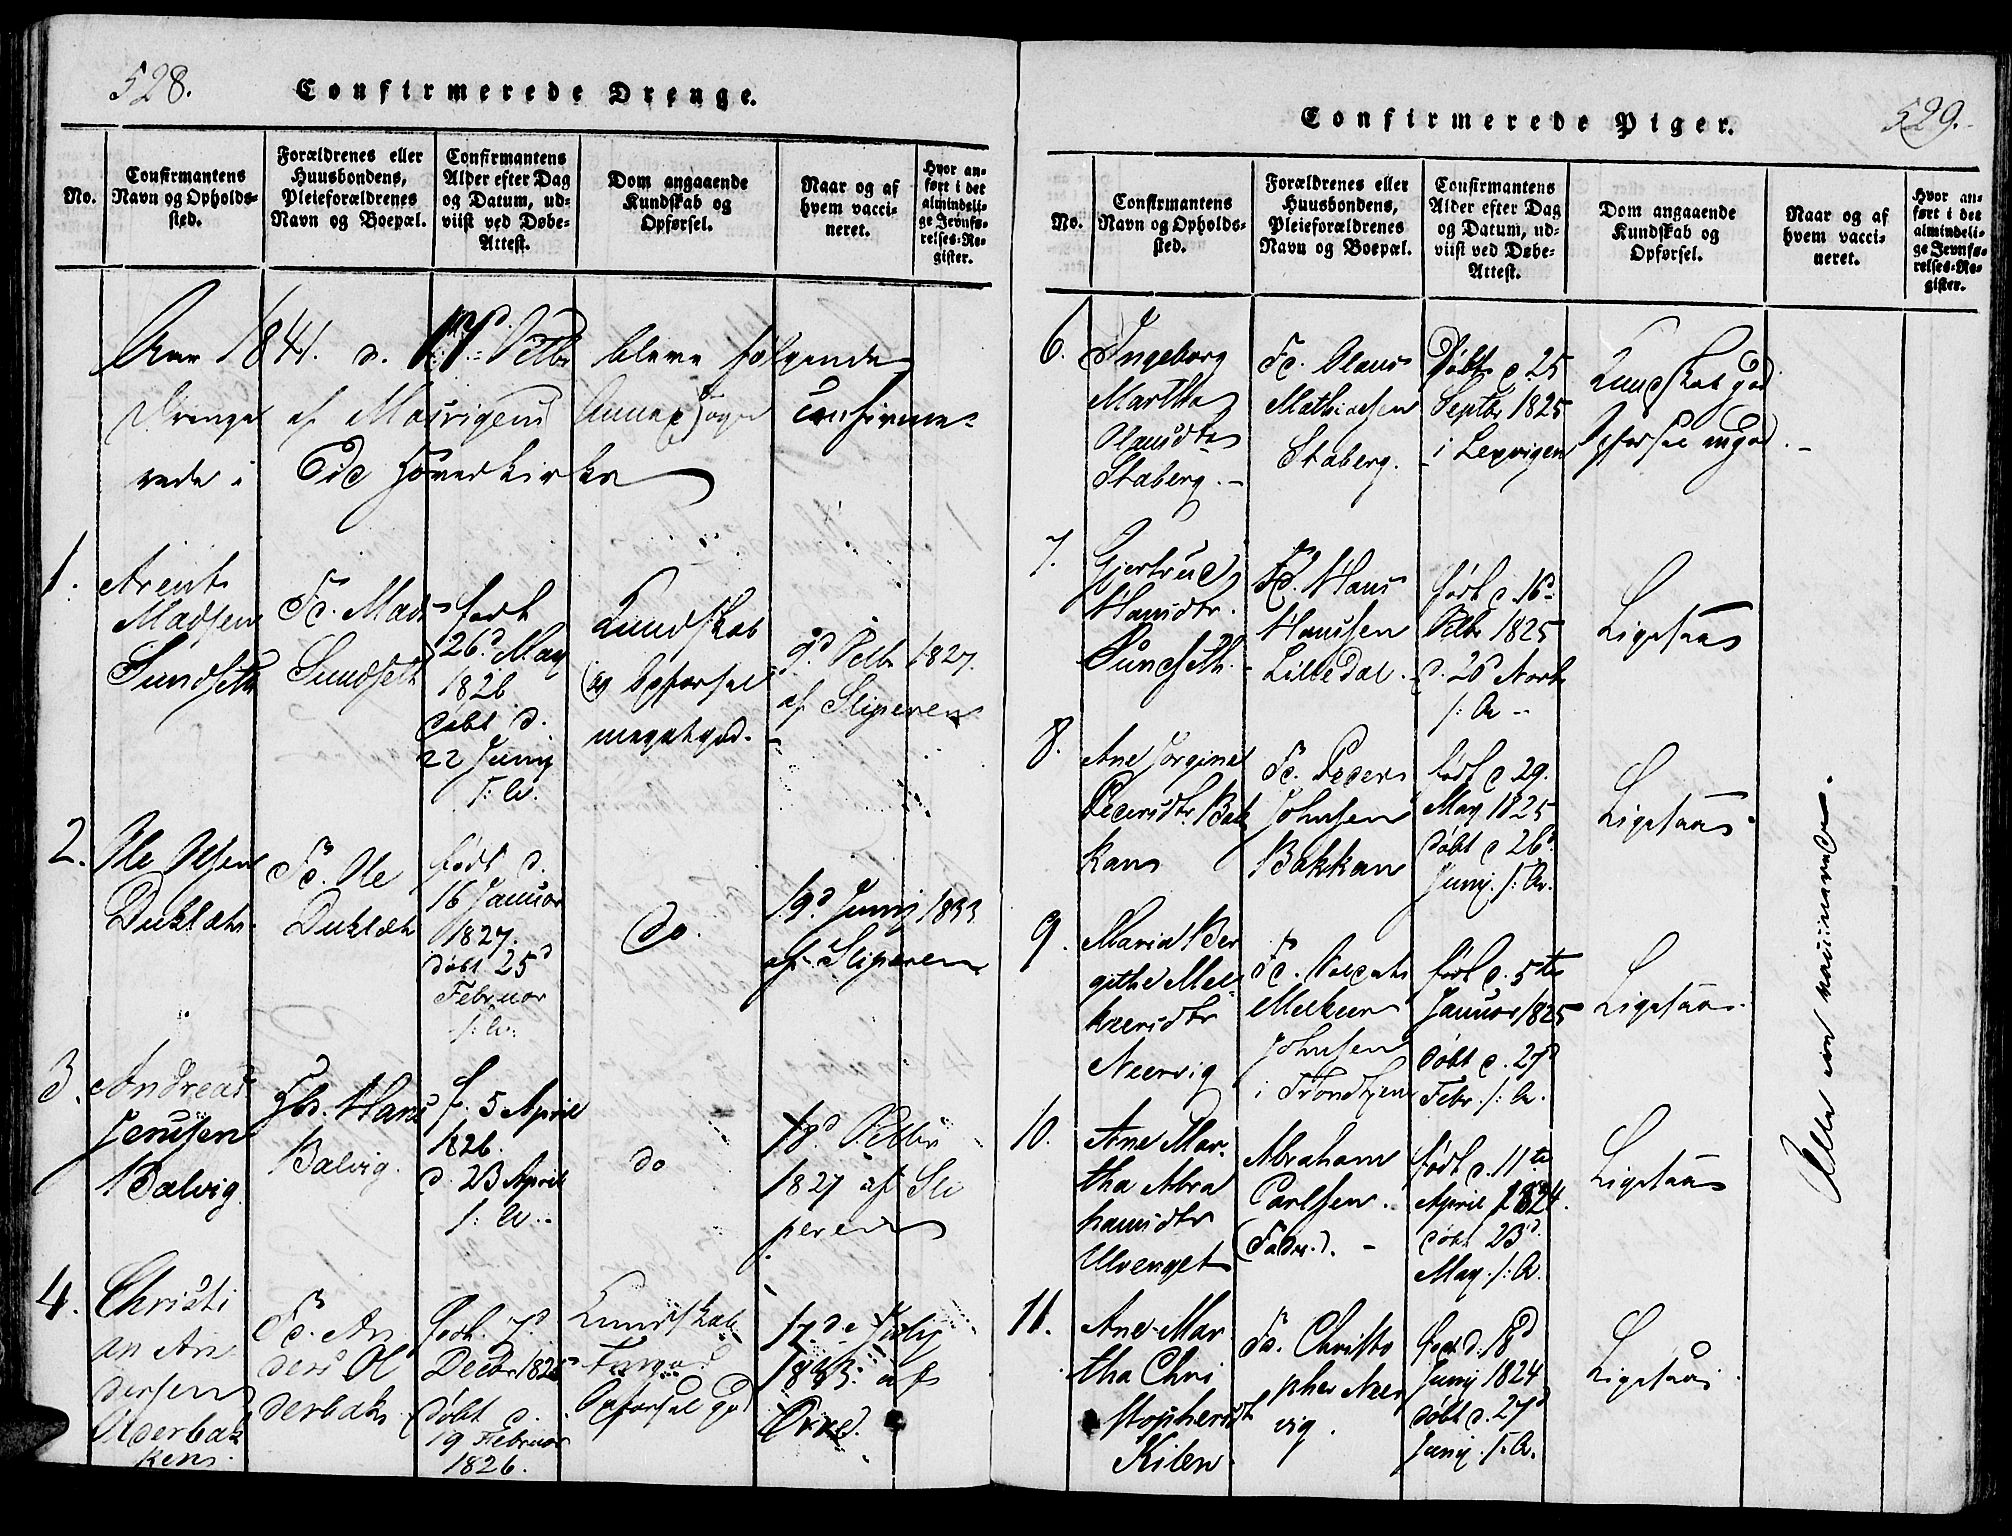 528.
Confirmerede Drenge.
No.
Confirmantens
Navn og Opholds-
sted.
Forældrenes eller
Huusbondens,
Pleieforældrenes
Navn og Boepæl.
Confirmantens
Alder efter Dag
og Datum, ud-
viist ved Døbe-
Attest.
Dom angaaende
Kundskab og
Opførsel.
Naar og af
hvem vacci-
neret.
Hvor an-
ført i det
almindeli-
ge Jevnfø-
relses-Re-
gister.
Aar 1841. d. Octbr bleve følgende
Drenge af Annex Sogn Confirme-
rede i Hovedkirke
1.
Arent
Madsen
Sundseth
Fd. Mads
Sundseth
født
26d May
1826
døbt d.
22 Junij
s: A.
Kundskab
og Opførsel
meget god.
9d Octbr 1827.
af Sliperen
2.
Ole Olsen
Duklæt
Fd. Ole
Duklæt
født d.
16 Januar
1827.
døbt 25d
Februar
s: A:
do.
19d Junij 1833
af Sliperen
3.
Andreas
Jensen
Balvig
Hans
Balvig.
f. 5 April
1826.
d. 23 April
s: A.
do
18d Octbr
1827 af Sli
peren
4.
Christi
an An
dersen
Olderbak
ken
Fd. An
ders Ol
derbak
født 7d
Decbr 1825
døbt d.
19 Februar
1826.
Kundskab
Opførsel god
17de July
1833 af
529.
Confirmerede Piger.
No.
Confirmantens
Navn og Opholds-
sted.
Forældrenes eller
Huusbondens,
Pleieforældrenes
Navn og Boepæl.
Confirmantens
Alder efter Dag
og Datum, ud-
viist ved Døbe-
Attest.
Dom angaaende
Kundskab og
Opførsel.
Naar og af
hvem vacci-
neret.
Hvor an-
ført i det
almindeli-
ge Jevnfø-
relses-Re-
gister.
6.
Ingeborg
Martha
Olausdtr
Staberg.
Fd. Olaus
Mathiasen
Staberg.
Døbt d. 25
Septbr 1825
i Lexvigen
Kundskab god
Opførsel god.
7.
Gjertrud
Hansdtr.
Sundseth.
Fd. Hans
Hansen
Lilledal.
født d. 16d
Octbr 1825
d. 26d Novb
s: A
Ligesaa
8.
Ane Jorgine
Pedersdtr Bak
kan
Fd. Peder
Johnsen
Bakkan
født d 29.
May 1825
døbt d 26d
Junij. s: A.
Ligesaa
9.
Maria Ber
githe Mel
kiersdtr
Neervig
Fd.
Melkeer
Johnsen
i Trondhjem
født d. 5te
Januar 1825
døbt d. 27d
Febr. s: A.
Ligesaa.
10.
Ane Mar
tha Abra
hamsdtr
Ulvenget
Abraham
Carlsen.
(Fadr.).
født d. 11te
April 1824.
døbt 23d
May. s: A.
Ligesaa
11.
Ane Mar
tha Chri
stophersdt
Kilen
Fd. Christo
pher Neer
vig.
fød. d. 18d
Junij 1824
døbt d. 27d
Junij. s: A.
Ligesaa
Alle ere vaccinerede.